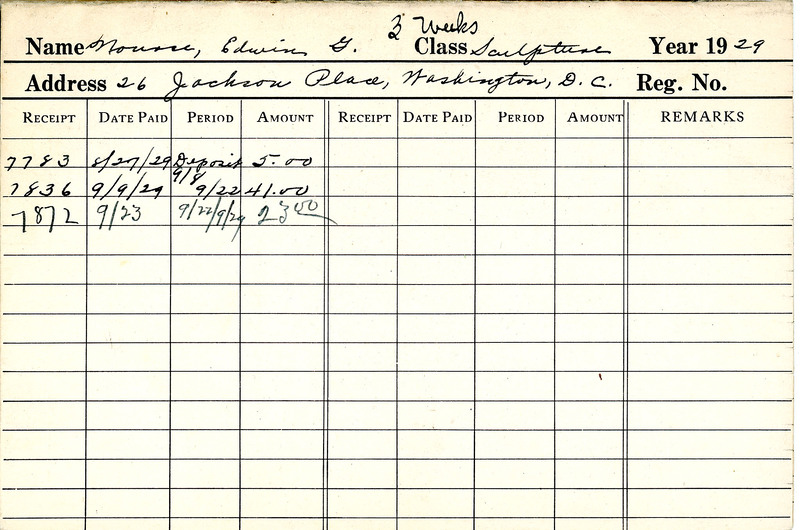 3 Weeks
Name Nourse, Edwin G. Class Sculpture Year 1929
Address 26 Jackson Place, Washington, D.C. Reg. No.
RECEIPT DATE PAID PERIOD AMOUNT RECEIPT DATE PAID PERIOD AMOUNT REMARKS
7783 8/27/29 Deposit 5.00
7836 9/9/29 9/8 9/22 41.00
7872 9/23 9/22/9/29 23.00